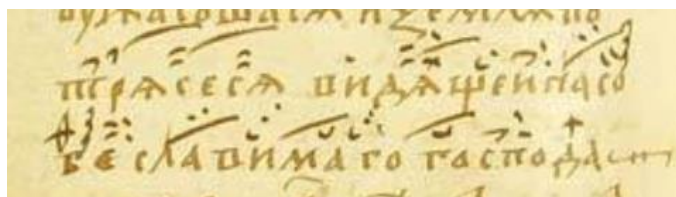 оужасошасѧ и землѧ по
трѧсесѧ видѧщеи на со
бе славимаго господа